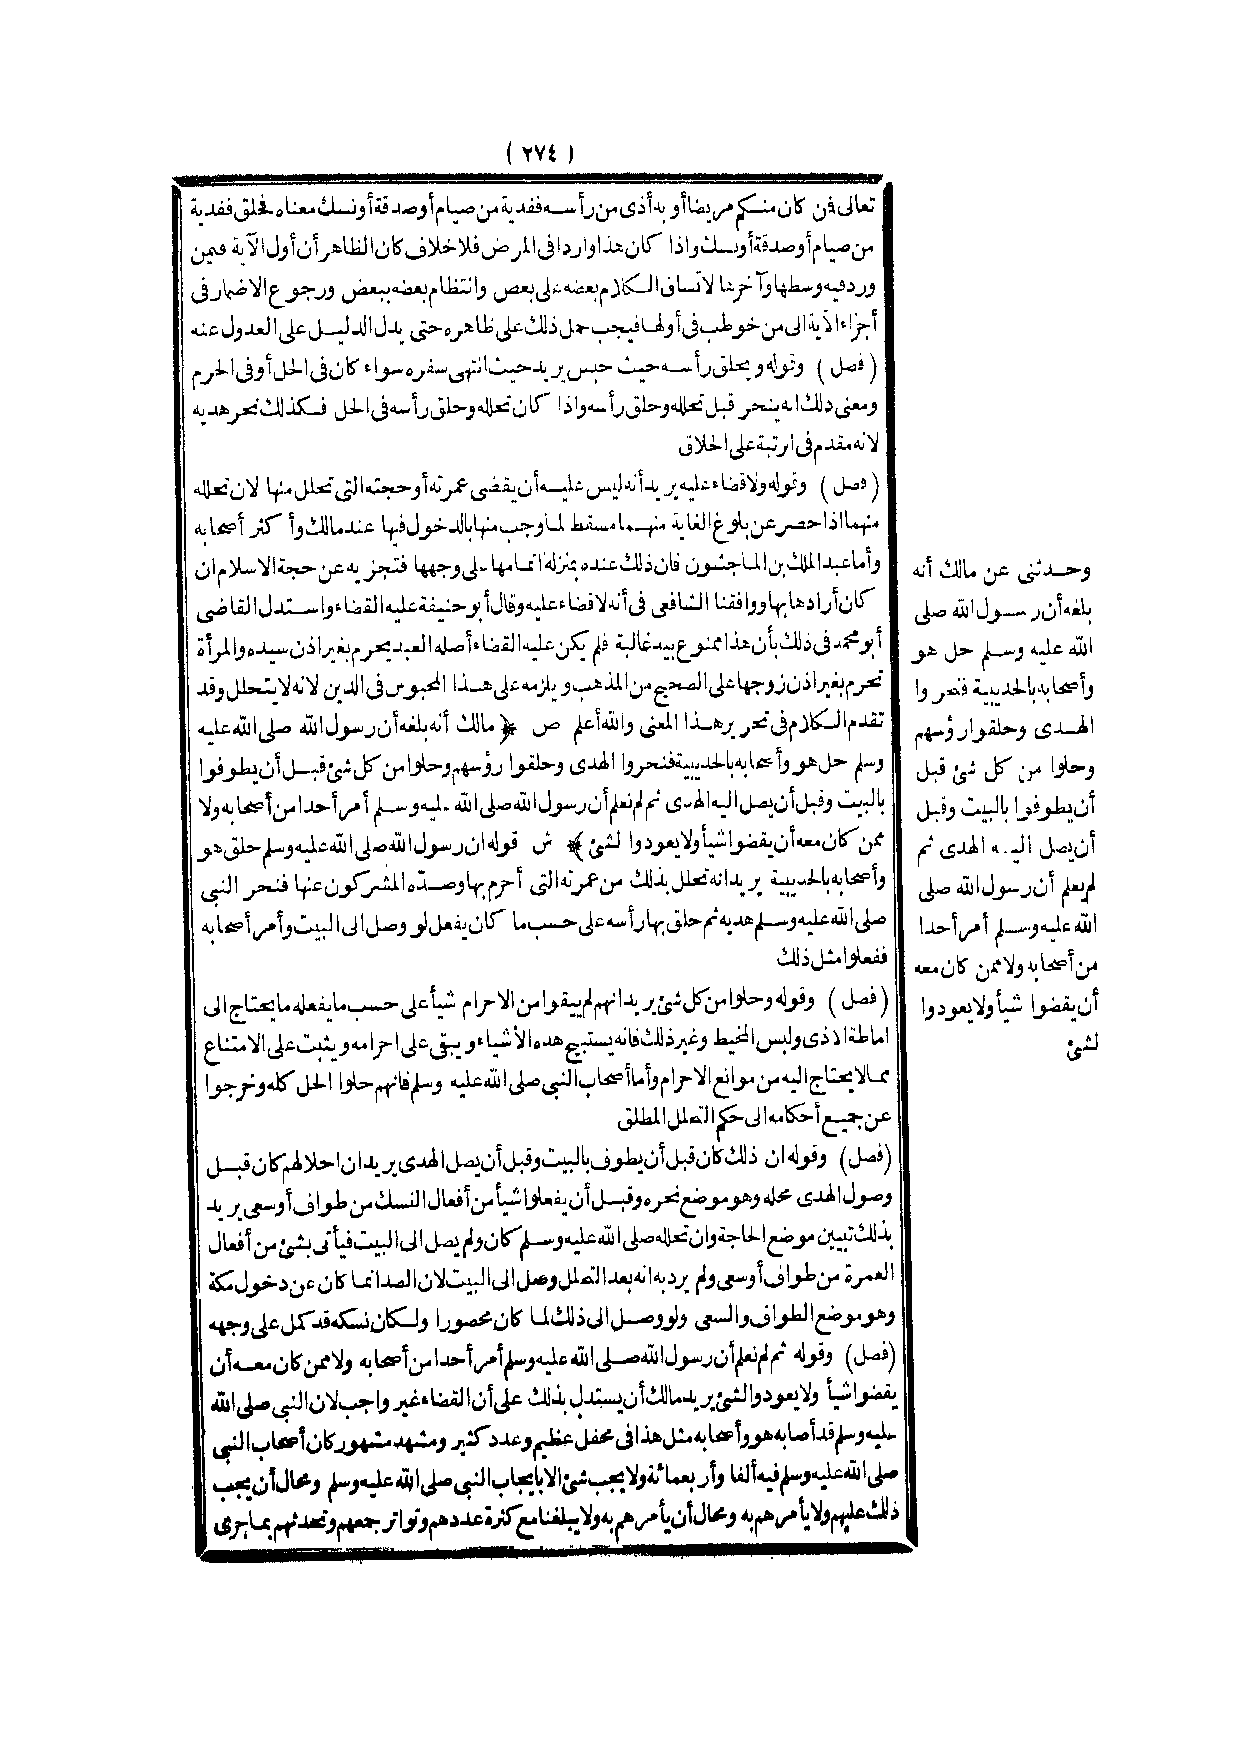 ( ٢٧٤ )
تعالى فمن كان منكم مريضا أو به أذى من رأسه ففدية من صيام أو صدقة أو نسك معناه فحلق ففدية
من صيام أو صدقة أو نسك واذا كان هذا واردا فى المرض فلا خلاف كان الظاهر أن أول الآية فيمن
ورد فيه وسطها وآخرها لاتساق الكلام بعضه على بعض وانتظام بعضه ببعض ورجوع الاضمار فى
أجزاء الآية الى من خوطب فى أولها فيجب حمل ذلك على ظاهره حتى يدل الدليل على العدول عنه
( فصل ) وقوله ويحلق رأسه حيث حبس يريد حيث انتهى سفره سواء كان فى الحل أو فى الحرم
ومعنى ذلك انه ينحر قبل تحلله وحلق رأسه واذا كان تحلله وحلق رأسه فى الحل فكذلك نحر هديه
لانه مقدم فى الرتبة على الحلاق
( فصل ) وقوله ولا قضاء عليه يريد أنه ليس عليه أن يقضى عمرته أو حجته التى تحلل منها لان تحلله
منهما اذا حصر عن بلوغ الغاية منهما مسقط لما وجب منها بالدخول فيها عند مالك وأكثر أصحابه
وأما عبد الملك بن الماجشون فان ذلك عنده بمنزلة اتمامها على وجهها فتجزيه عن حجة الاسلام ان
كان أرادها بها ووافقنا الشافعى فى أنه لا قضاء عليه وقال أبو حنيفة عليه القضاء واستدل القاضى
أبو محمد فى ذلك بأن هذا ممنوع بيد غالبة فلم يكن عليه القضاء أصله العبد يحرم بغير اذن سيده والمرأة
تحرم بغير اذن زوجها على الصحيح من المذهب ويلزمه على هذا المحبوس فى الدين لانه لا يتحلل وقد
تقدم الكلام فى تحرير هذا المعنى والله أعلم ص ﴿ مالك أنه بلغه أن رسول الله صلى الله عليه
وسلم حل هو وأصحابه بالحديبية فنحروا الهدى وحلقوا رؤسهم وحلوا من كل شئ قبل أن يطوفوا
بالبيت وقبل أن يصل اليه الهدى ثم لم نعلم أن رسول الله صلى الله عليه وسلم أمر أحدا من أصحابه ولا
ممن كان معه أن يقضوا شيأ ولا يعودوا لشئ ﴾ ش قوله ان رسول الله صلى الله عليه وسلم حلق هو
وأصحابه بالحديبية يريد انه تحلل بذلك من عمرته التى أحرم بها وصده المشركون عنها فنحر النبى
صلى الله عليه وسلم هديه ثم حلق بها رأسه على حسب ما كان يفعل لو وصل الى البيت وأمر أصحابه
ففعلوا مثل ذلك
( فصل ) وقوله وحلوا من كل شئ يريد انهم لم يبقوا من الاحرام شيأ على حسب ما يفعله ما يحتاج الى
اماطة الاذى ولبس المخيط وغير ذلك فانه يستبيح هذه الأشياء ويبقى على احرامه ويثبت على الامتناع
مما لا يحتاج اليه من موانع الاحرام وأما أصحاب النبى صلى الله عليه وسلم فانهم حلوا الحل كله وخرجوا
عن جميع أحكامه الى حكم التحلل المطلق
( فصل ) وقوله ان ذلك كان قبل أن يطوف بالبيت وقبل أن يصل الهدى يريد ان احلالهم كان قبل
وصول الهدى محله وهو موضع نحره وقبل أن يفعلوا شيأ من أفعال النسك من طواف أو سعى يريد
بذلك تبيين موضع الحاجة وان تحلله صلى الله عليه وسلم كان ولم يصل الى البيت فيأتى بشئ من أفعال
العمرة من طواف أو سعى ولم يرد به انه بعد التحلل وصل الى البيت لان الصد انما كان عن دخول مكة
وهو موضع الطواف والسعى ولو وصل الى ذلك لما كان محصورا ولكان نسكه قد كمل على وجهه
( فصل ) وقوله ثم لم نعلم أن رسول الله صلى الله عليه وسلم أمر أحدا من أصحابه ولا ممن كان معه أن
يقضوا شيأ ولا يعودوا لشئ يريد مالك أن يستدل بذلك على أن القضاء غير واجب لان النبى صلى الله
عليه وسلم قد أصابه هو وأصحابه مثل هذا فى محفل عظيم وعدد كثير ومشهد مشهور كان أصحاب النبى
صلى الله عليه وسلم فيه ألفا وأربعمائة ولا يجب شئ الا بايجاب النبى صلى الله عليه وسلم ومحال أن يجب
ذلك عليهم ولا يأمرهم به ومحال أن يأمرهم به ولا يبلغنا مع كثرة عددهم وتواتر جمعهم وتحدثهم بما جرى
وحدثنى عن مالك أنه
بلغه أن رسول الله صلى
الله عليه وسلم حل هو
وأصحابه بالحديبية فنحروا
الهدى وحلقوا رؤسهم
وحلوا من كل شئ قبل
أن يطوفوا بالبيت وقبل
أن يصل اليه الهدى ثم
لم يعلم أن رسول الله صلى
الله عليه وسلم أمر أحدا
من أصحابه ولا ممن كان معه
أن يقضوا شيأ ولا يعودوا
لشئ